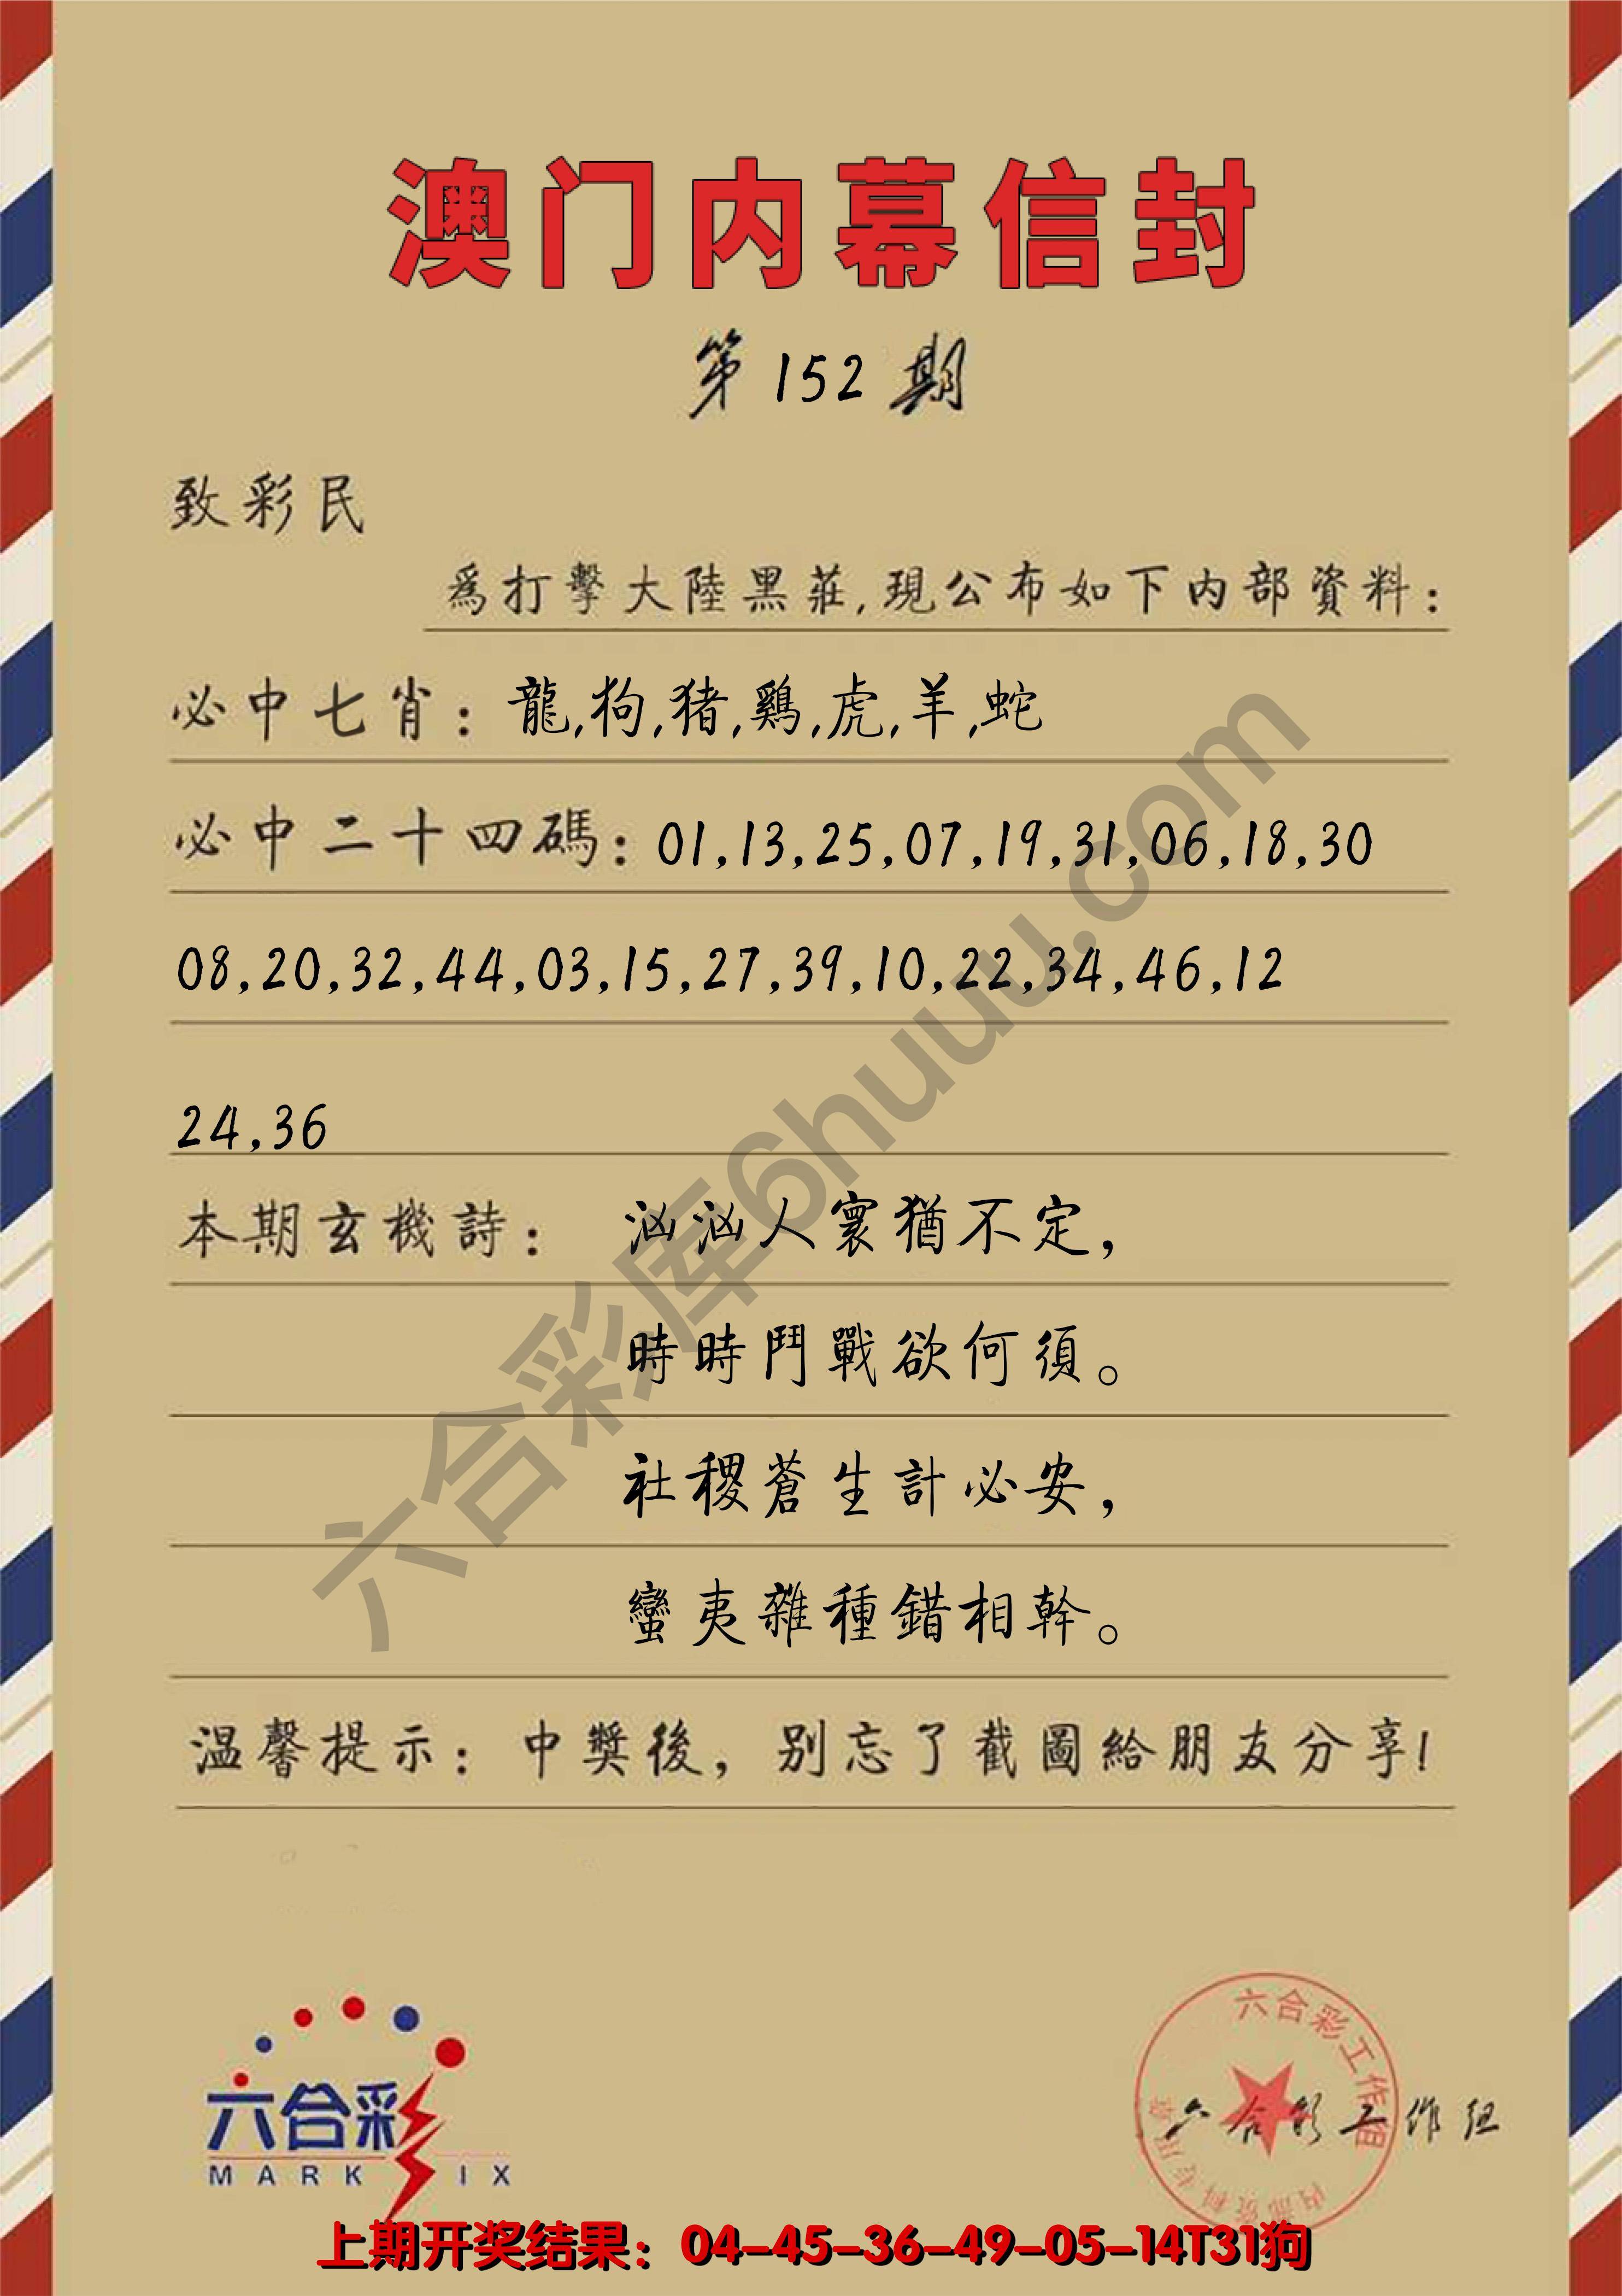 澳门内幕信封
第152期
致彩民
爲打擊大陸黑莊,現公布如下内部資料:
必中七肖:龍,狗,猪,鷄,虎,羊,蛇
必中二十四碼:01,13,25,07,19,31,06,18,30
08,20,32,44,03,15,27,39,10,22,34,46,12
24,36
本期玄機詩: 汹汹人寰猶不定,
時時鬥戰欲何須。
社稷蒼生計必安,
蠻夷雜種錯相幹。
温馨提示:中獎後,别忘了截圖給朋友分享!
六合彩库6huuu.com
六合彩
MARK IX
六合彩工作组
内部资料专用章
六合彩工作组
上期开奖结果:04-45-36-49-05-14T31狗